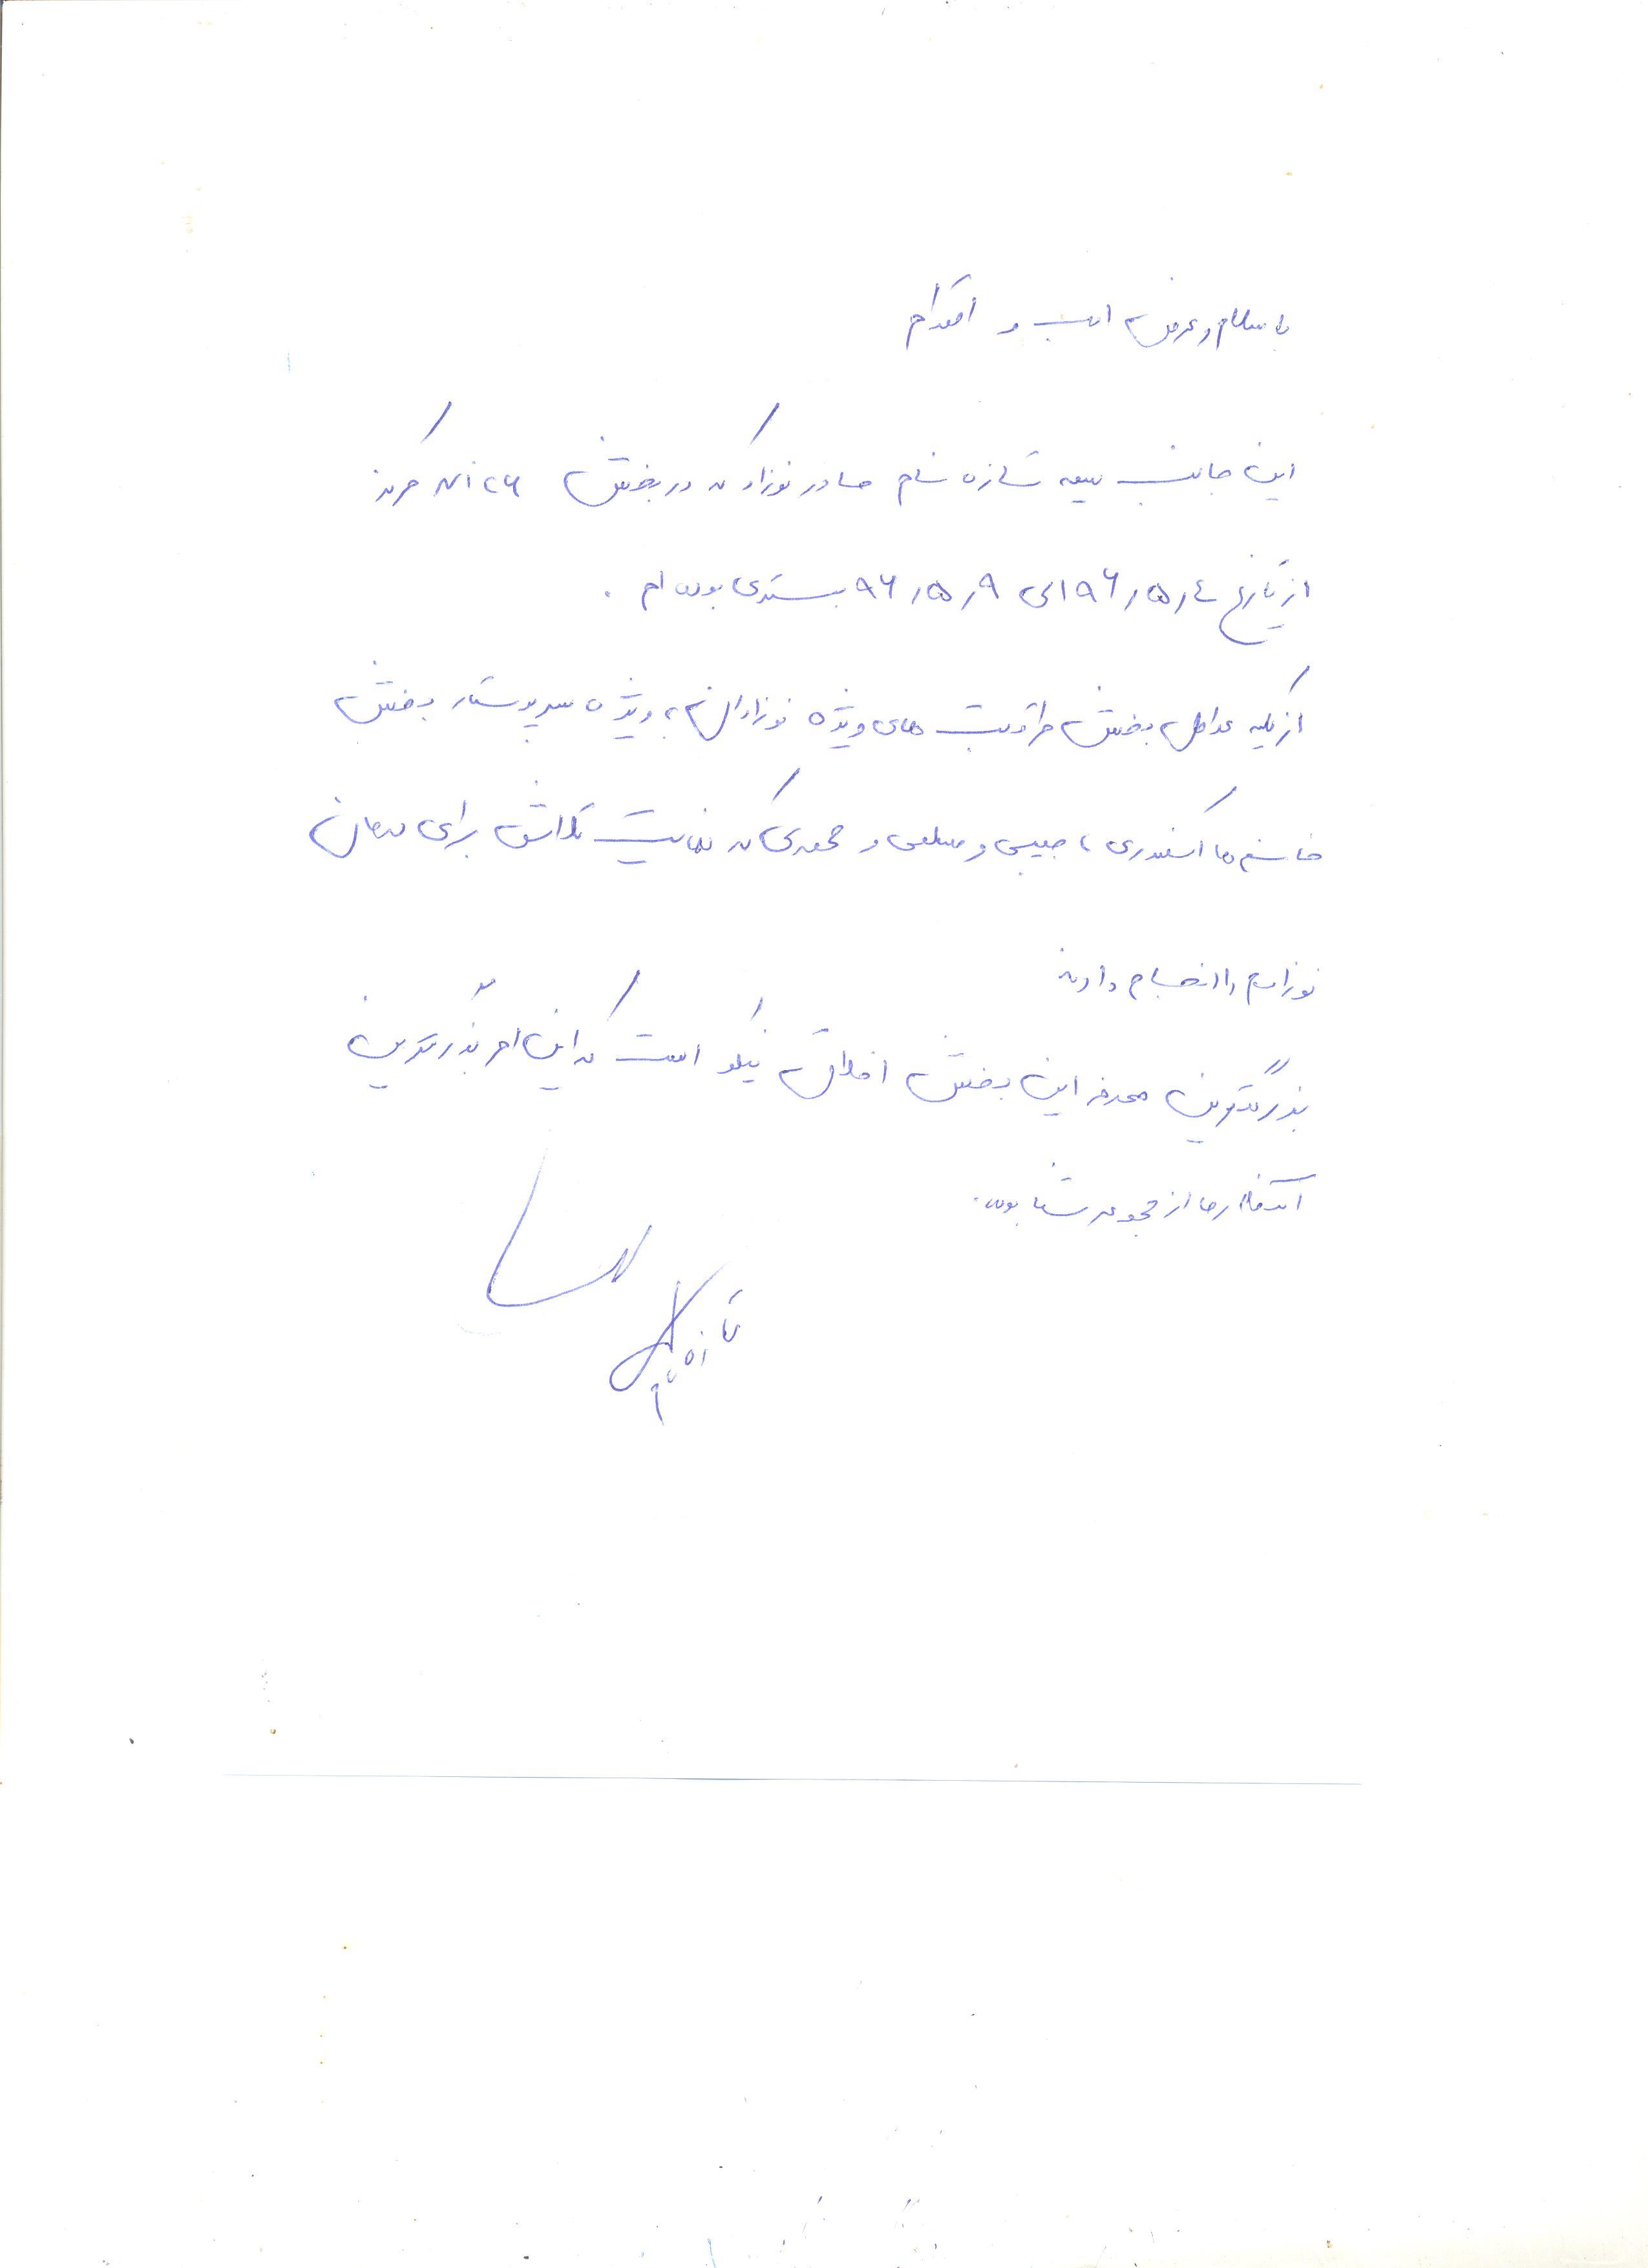 با سلام و عرض ادب و احترام
این جانب سیعه تازه شام مادر نوزاد که در بخش ان آی سی یو مرکز
از تاریخ ٤ر۵ر۹۶ الی ۹ر۵ر۹۶ بستری بوده ام .
از کلیه عوامل بخش مراقبت های ویژه نوزادان به ویژه سرپرستار بخش
خانم ها اسکندری ، حبیبی و و محمدی که نهایت تلاش برای درمان
نوزادم را انجام دادند
بزرگترین معرفه این بخش اخلاق نیکو است که این امر بزرگترین
از مجموعه شما بوده.